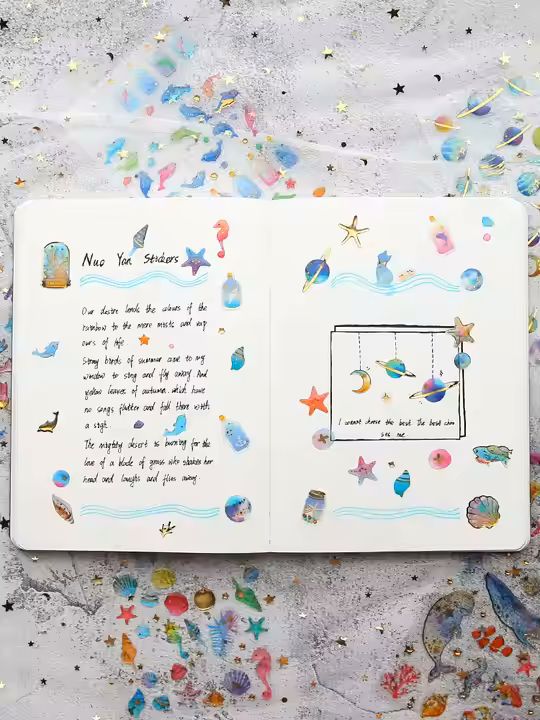 Nuo Yan Stickers
Our desire lends the colours of the
rainbow to the mere mists and vap
ours of life
Stray birds of summer come to my
window to sing and fly away And
yellow leaves of autumn which have
no songs flutter and fall there with
a sigh.
The mighty desert is burning for the
love of a blade of grass who shakes her
head and laughs and flies away.
I cannot choose the best The best choo
ses me